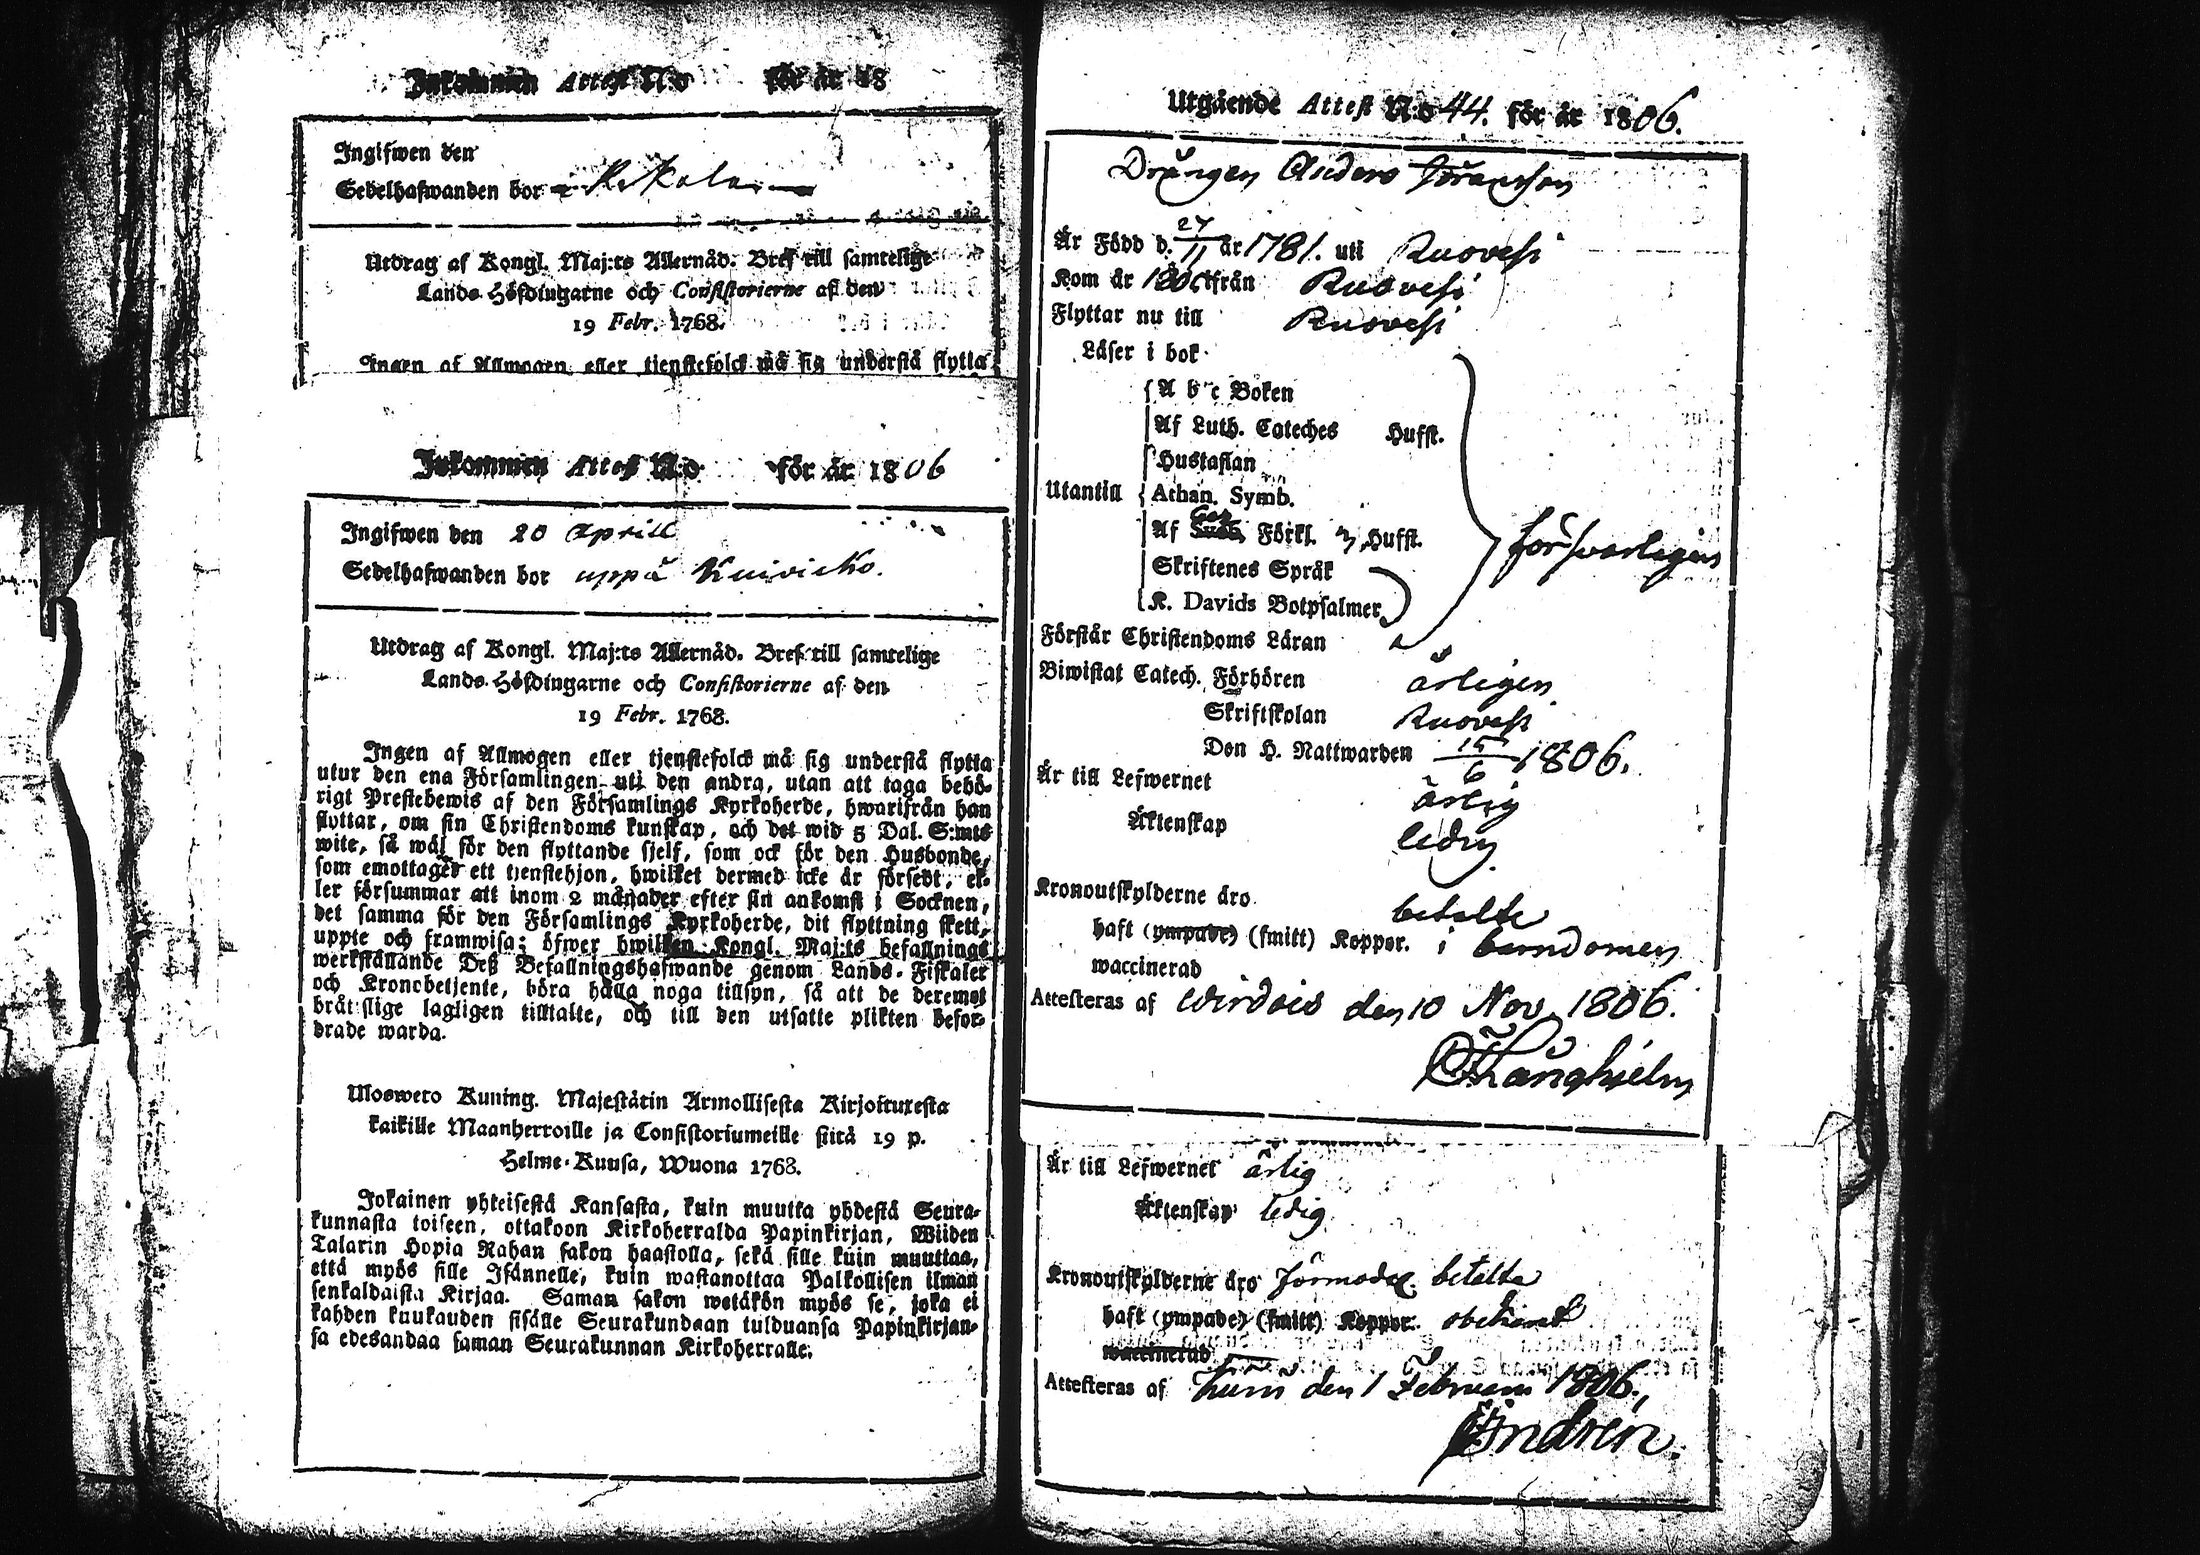 Inkommen Attest N:o för år 18
Ingifwen den
Sedelhafwanden bor
Utdrag af Kongl. Maj:ts Allernåd. Bref till samtelige
Lands-Höfdingarne och Consistorierne af den
19 Febr. 1768.
Ingen af Allmogen eller tjenstefolck må sig understå flytta
Inkommen Attest N:o för år 1806
Ingifwen den 20 Aprill
Sedelhafwanden bor uppå
Utdrag af Kongl. Maj:ts Allernåd. Bref till samtelige
Lands-Höfdingarne och Consistorierne af den
19 Febr. 1768.
Ingen af Allmogen eller tjenstefolck må sig understå flytta
utur den ena Församlingen uti den andra, utan att taga behö-
rigt Prestebewis af den Församlings Kyrkoherde, hwarifrån han
flyttar, om sin Christendoms kunskap, och det wid 5 Dal. S:mts
wite, så wäl för den flyttande sjelf, som ock för den Husbonde,
som emottager ett tjenstehjon, hwilket dermed icke är försedt, el-
ler försummar att inom 2 månader efter sin ankomst i Socknen,
det samma för den Församlings Kyrkoherde, dit flyttning skett,
uppte och framwisa; öfwer hwilken Kongl. Maj:ts befallnings
werkställande Deß Befallningshafwande genom Lands-Fiskaler
och Kronobetjente, böra hålla noga tillsyn, så att de deremot
bråtslige lagligen tilltalte, och till den utsatte plikten befor-
drade warda.
Uloswero Kuning. Majestätin Armollisesta Kirjoituxesta
kaikille Maanherroille ja Consistoriumeille siitä 19 p.
Helme-Kuusa, Wuona 1768.
Jokainen yhteisestä Kansasta, kuin muutta yhdestä Seura-
kunnasta toiseen, ottakoon Kirkoherralda Papinkirjan, Wiiden
Talarin Hopia Rahan sakon haastolla, sekä sille kuin muuttaa,
että myös sille Isännelle, kuin wastanottaa Palkollisen ilman
senkaldaista Kirjaa. Saman sakon wetäkön myös se, joka ei
kahden kuukauden sisälle Seurakundaan tulduansa Papinkirjan-
sa edesandaa saman Seurakunnan Kirkoherralle.
Utgående Attest N:o 44. för år 1806.
Drängen Anders Göransson
Är Född d. 27/11 år 1781. uti Ruovesi
Kom år från Ruovesi
Flyttar nu till Ruovesi
Läser i bok
A b c Boken
Af Luth. Cateches Hufst.
Hustaflan
Utantill Athan. Symb.
Af Förkl. Hufst.
Skriftenes Språk
K. Davids Botpsalmer
försvarligen
Förstår Christendoms Läran
Biwistat Catech. Förhören årligen
Skriftskolan Ruovesi
Den H. Nattwarden 15/6 1806.
Är till Lefwernet ärlig
Äktenskap ledig
Kronoutskylderne äro betalte
haft (ympade) (smitt) Koppor. i barndomen
waccinerad
Attesteras af Wirdois den 10 Nov. 1806.
Är till Lefwernet ärlig
Äktenskap ledig
Kronoutskylderne äro förmodel. betalte
haft (ympade) (smitt) Koppor. obekant
waccinerad
Attesteras af den 1 Februarii 1806.